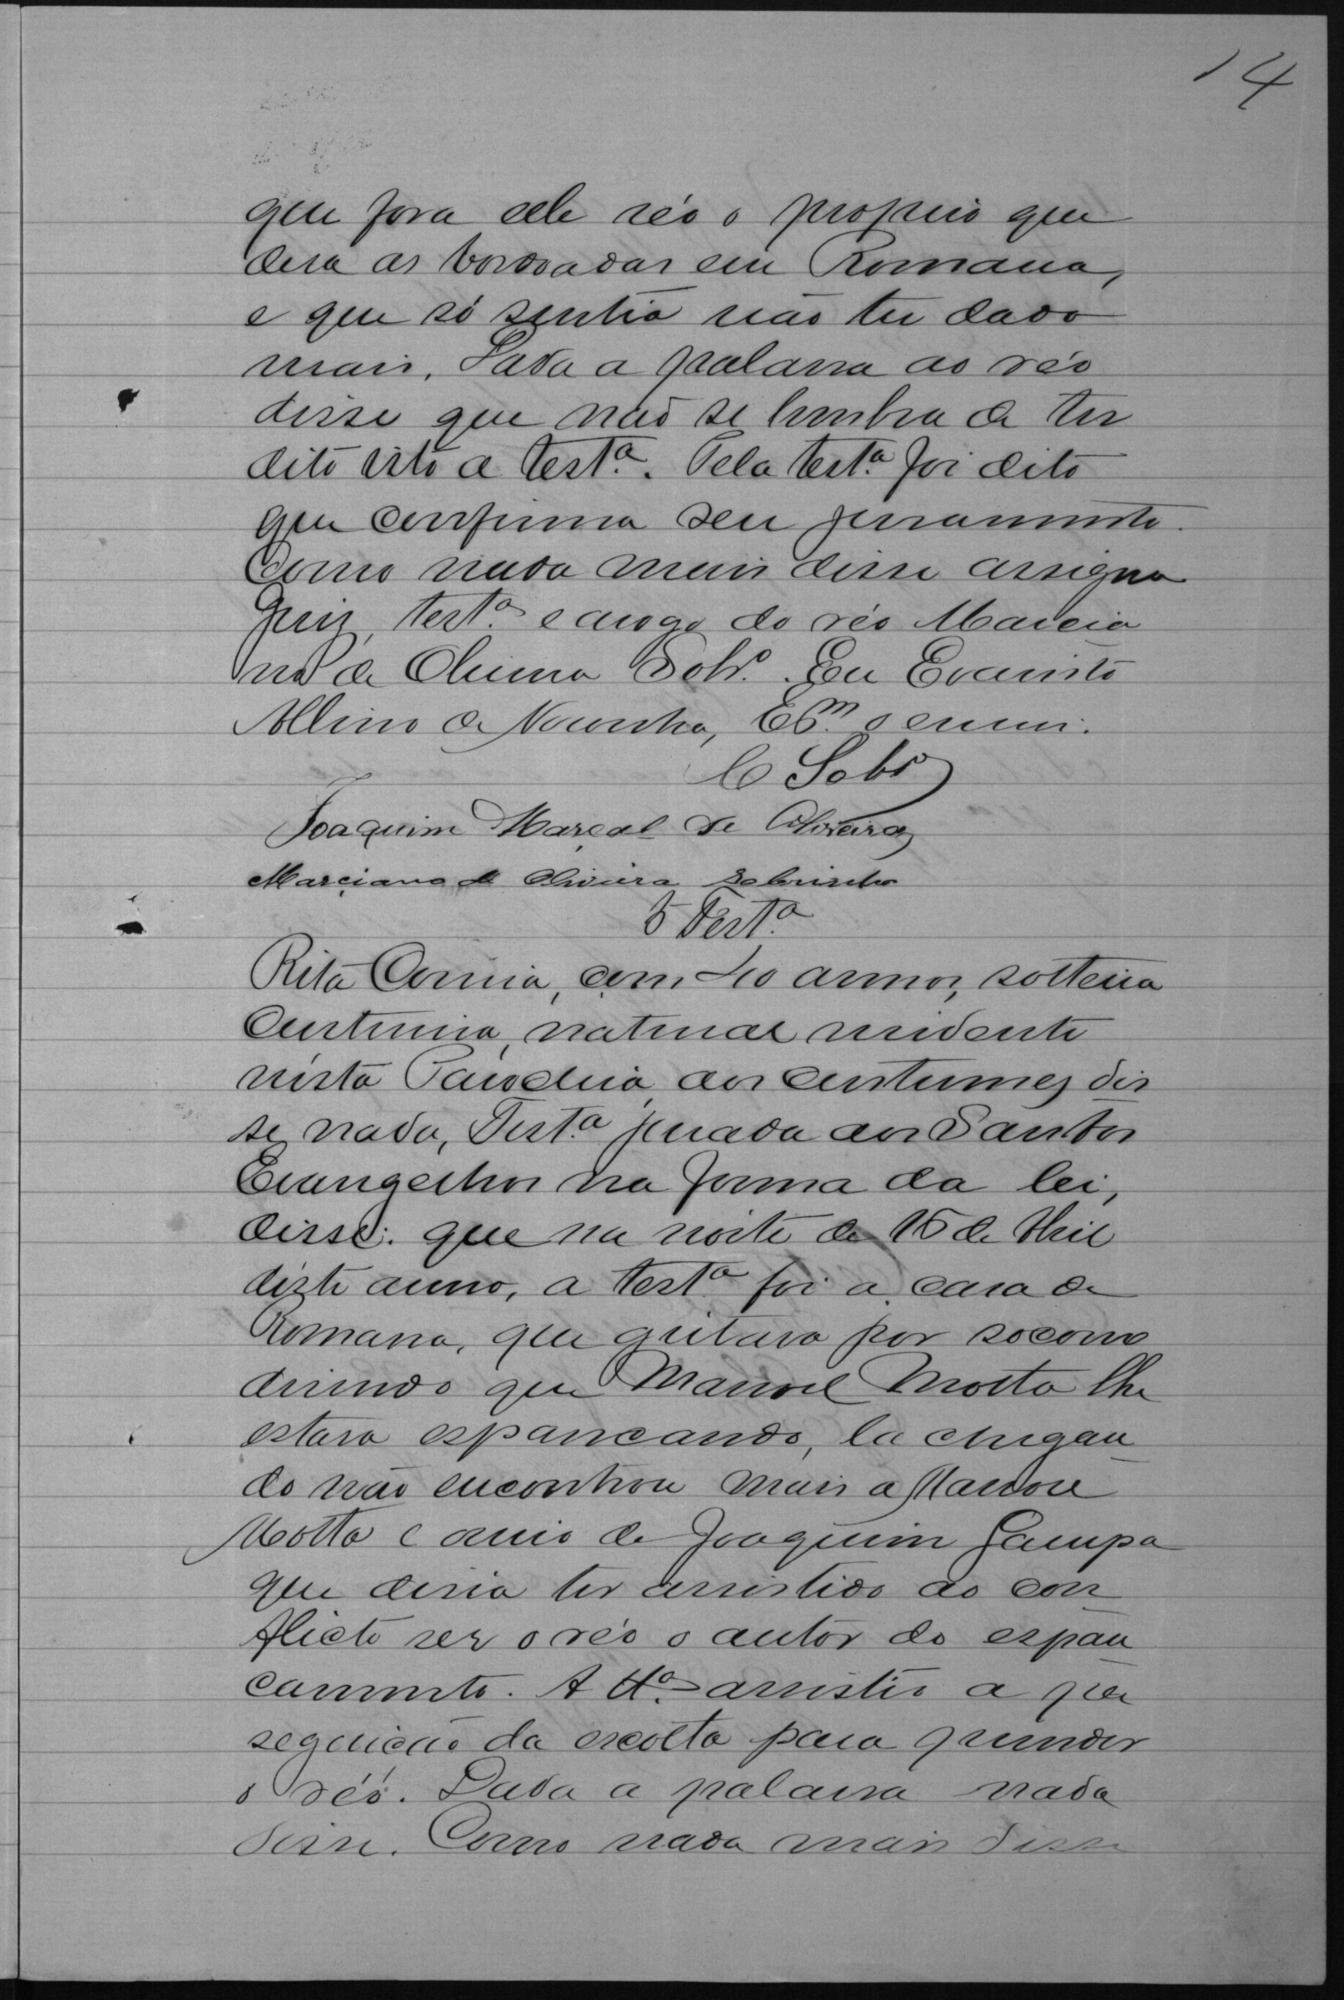 14
que fora elle réo o proprio que
dera as bordoadas em Romana,
e que só sentia não ter dado
mais. Dada a palavra ao réo
disse que não se lembra de ter
dito isto a test.ª. Pela test.ª foi dito
que confirma seu juramento.
Como nada mais disse assigna
Juiz, test.ª e a rogo do réo Marcia
no de Oliveira Sobr.º. Eu Evaristo
Albino de Noronha, Es.m o escrevi.
C Sobr.º
Joaquim Marçal de Oliveira
Marciano de Oliveira Sobrinho
5 Test.ª
Rita Correia, com 40 annos, solteira
Custureira, natural residente
nesta Parochia, aos custumes dis
se nada, Test.ª jurada aos Santos
Evangelhos na forma da lei,
disse: que na noite de 15 de Abril
deste anno, a test.ª foi a casa de
Romana, que gritava por socorro
disendo que Manoel Motta lhe
estava espancando, la chegan
do não encontrou mais a Manoel
Motta e ouvio de Joaquim
que disia ter assistido ao con
flicto ser o réo o autor do espan
camento. A tt.ª assistio a per
seguição da escolta para prender
o réo. Dada a palavra nada
disse. Como nada mais disse